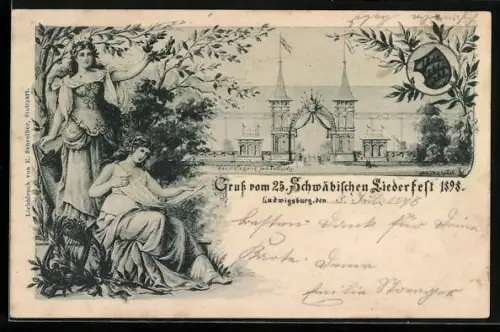 Lichtdruck von E. Schreiber, Stuttgart.
Gruß vom 25. Schwäbischen Liederfest 1898.
Ludwigsburg, den 5. Juli 1898
besten Dank für Deine
Karte. Deine
Emilie